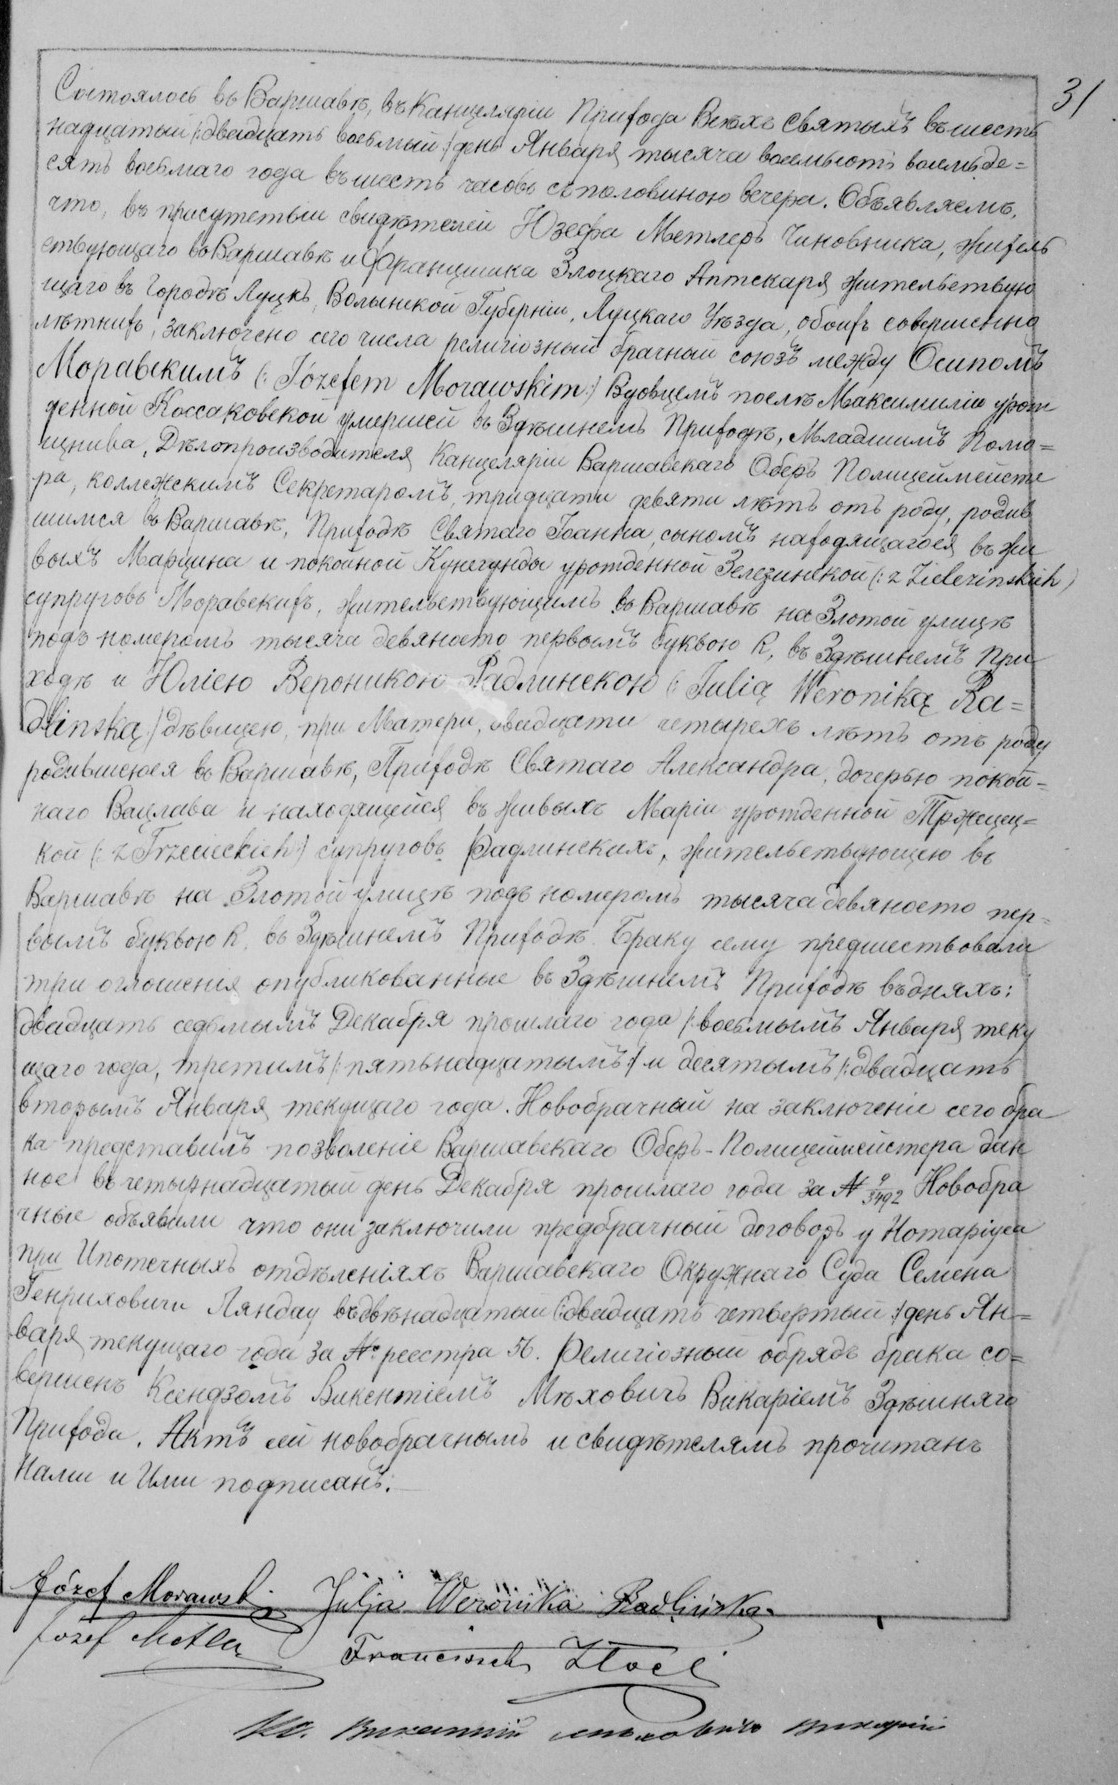 31
Состоялось въ Варшавѣ, въ Канцеляріи Прихода Всѣхъ Святыхъ въ шест
надцатый /:двадцать восьмый:/ день Января тысяча восемьсотъ восемьде=
сятъ восьмаго года въ шесть часовъ съ половиною вечера. Объявляемъ,
что, въ присутствіи свидѣтелей Юзефа Метлеръ Чиновника, житель
ствующаго въ Варшавѣ и Францишка Злоцкаго Аптекаря жительствую
щаго въ Городѣ Луцкѣ, Волынской Губерніи, Луцкаго Уѣзда, обоихъ совершенно
лѣтнихъ, заключено сего числа религіозный брачный союзъ между Осипомъ
Моравскимъ (: Józefem Morawskim:) Вдовцемъ послѣ Максимиліи урож
денной Коссаковской умершей въ Здѣшнемъ Приходѣ, Младшимъ Помо=
щника, Дѣлопроизводителя Канцеляріи Варшавскаго Оберъ Полицеймейсте
ра, коллежскимъ Секретаромъ, тридцати девяти лѣтъ отъ роду, родив
шимся въ Варшавѣ, Приходѣ Святаго Іоанна, сыномъ находящагося въ жи
выхъ Марцина и покойной Кунегунды урожденной Зелезинской (: z Zielezińskich)
супруговъ Моравскихъ, жительствующимъ въ Варшавѣ на Злотой улицѣ
подъ номеромъ тысяча девяносто первымъ буквою R, въ Здѣшнемъ При
ходѣ и Юліею Вероникою Радлинскою (: Julią Weroniką Ra=
dlinską:) дѣвицею, при Матери, двадцати четырехъ лѣтъ отъ роду
родившеюся въ Варшавѣ, Приходѣ Святаго Александра, дочерью покой=
наго Вацлава и находящейся въ живыхъ Маріи урожденной Тржецец=
кой (: z Trzecieckich:) супруговъ Радлинскихъ, жительствующею въ
Варшавѣ на Злотой улицѣ подъ номеромъ тысяча девяносто пер=
вымъ буквою R, въ Здѣшнемъ Приходѣ. Браку сему предшествовали
три оглошенія опубликованные въ Здѣшнемъ Приходѣ въ дняхъ:
двадцать седьмымъ Декабря прошлаго года /:восьмымъ Января теку
щаго года, третимъ /:пятьнадцатымъ:/ и десятымъ /:двадцать
вторымъ Января текущаго года. Новобрачный на заключеніе сего бра
ка представилъ позволеніе Варшавскаго Оберъ-Полицеймейстера дан
ное въ четырнадцатый день Декабря прошлаго года за № 9/3492 Новобра
чные объявили что они заключили предбрачный договоръ у Нотаріуса
при Ипотечныхъ отдѣленіяхъ Варшавскаго Окружнаго Суда Семена
Генриховича Ляндау въ двѣнадцатый /:двадцать четвертый:/ день Ян=
варя текущаго года за № реестра 56. Религіозный обрядъ брака со=
вершенъ Ксендзомъ Викентіемъ Мѣховичъ Викаріемъ Здѣшняго
Прихода. Актъ сей новобрачнымъ и свидѣтелямъ прочитанъ
Нами и Ими подписанъ:
Józef Morawski Julja Weronika Radlińska
Józef Metler Franciszek Złocki
Кс. Викентій Мѣховичъ Викарій